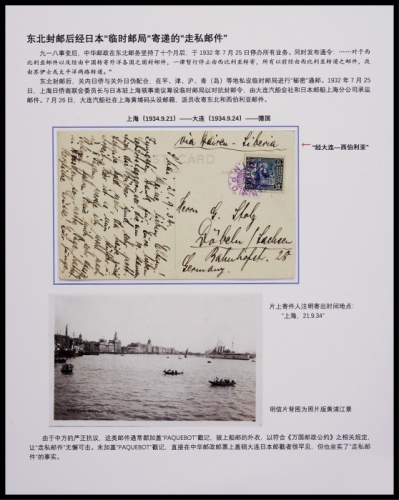 东北封邮后经日本“临时邮局”寄递的“走私邮件”
九一八事变后，中华邮政在东北邮务坚持了十个月后，于 1932 年 7 月 25 日停办所有业务。同时发布通令：……对于西
比利亚邮件以及经由中国转寄外洋各国之国封邮件，一律暂行停止由西比利亚转寄，所有以前经由西比利亚转递之邮件，改
由苏伊士或太平洋两路转递。”
东北封邮后，关内日侨与关外日伪配合，在平、津、沪、青（岛）等地私设临时邮局进行“秘密”通邮。1932 年 7 月 25
日，上海日侨商联会委员长与日本驻上海领事商议筹设临时邮局以对抗封邮令，由大连汽船会社和日本邮船上海分公司承运
邮件。7 月 26 日，大连汽船社在上海黄埔码头设邮箱，派员收寄东北和西伯利亚邮件。
上海（1934.9.21）——大连（1934.9.24）——德国
via Dairen - Siberia
“经大连—西伯利亚”
CARD
21.9.34
Herrn G. Stolz
Döbeln/Sachsen
Bahnhofstr. 28
Germany.
片上寄件人注明寄出时间地点：
“上海，21.9.34”
明信片背图为照片版黄浦江景
由于中方的严正抗议，这类邮件通常都加盖“PAQUEBOT”戳记，披上船邮的外衣，以符合《万国邮政公约》之相关规定，
让“走私邮件”无懈可击。未加盖“PAQUEBOT”戳记，直接在中华邮政邮票上盖销大连日本邮戳者很罕见，但也坐实了“走私邮
件”的事实。